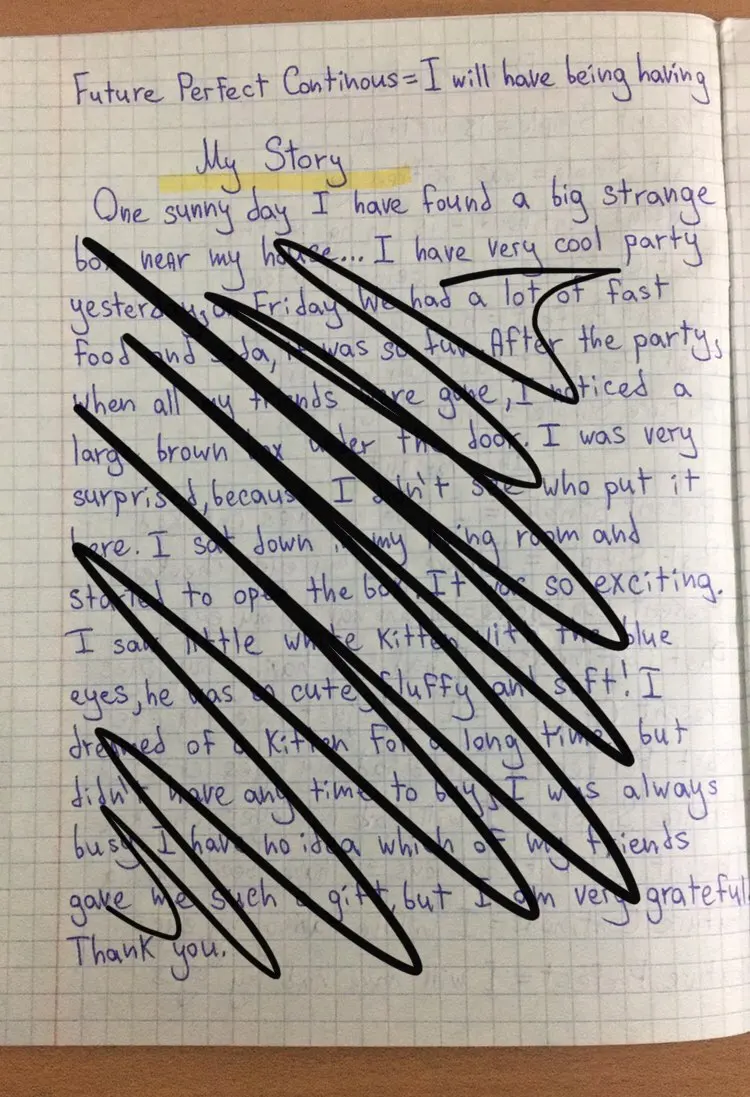 Future Perfect Continous = I will have being having
My Story
One sunny day I have found a big strange
box near my house... I have very cool party
yesterday, on Friday. We had a lot of fast
food and soda, it was so fun. After the party,
when all my friends were gone, I noticed a
large brown box under the door. I was very
surprised, because I didn't see who put it
here. I sat down in my living room and
started to open the box. It was so exciting.
I saw little white kitten with the blue
eyes, he was so cute, fluffy and soft! I
dreamed of a kitten for a long time, but
didn't have any time to buy, I was always
busy. I have no idea which of my friends
gave me such a gift, but I am very grateful.
Thank you.